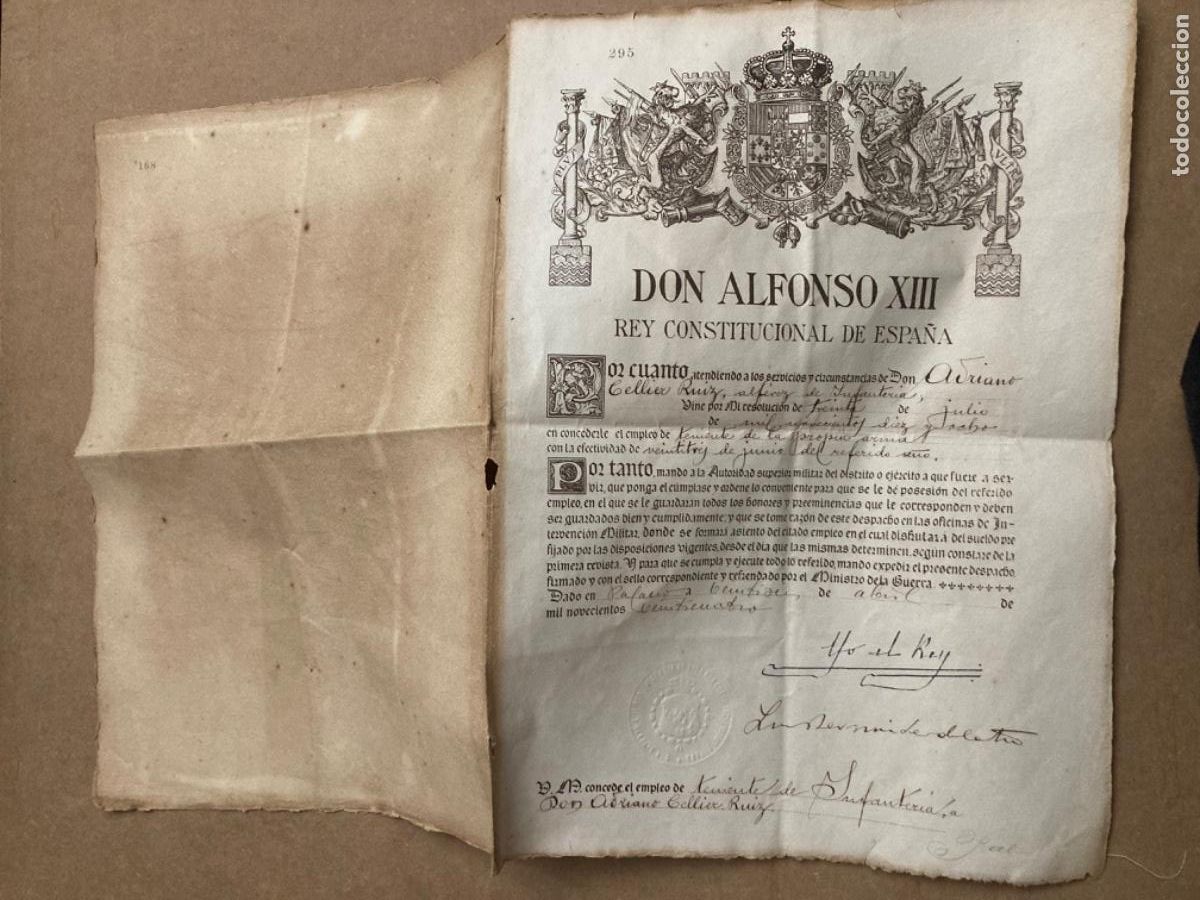 todocoleccion
295
168
PLVS
VLTRA
DON ALFONSO XIII
REY CONSTITUCIONAL DE ESPAÑA
Por cuanto, atendiendo a los servicios y circunstancias de Don Adriano
Cellier Ruiz, alférez de Infantería,
Vine por Mi resolución de treinta de julio
de mil novecientos diez y ocho
en concederle el empleo de teniente de la propia arma
con la efectividad de veintitrés de junio del referido año.
Por tanto, mando a la Autoridad superior militar del distrito o ejército a que fuere a ser-
vir, que ponga el cúmplase y ordene lo conveniente para que se le dé posesión del referido
empleo, en el que se le guardarán todos los honores y preeminencias que le corresponden y deben
ser guardados bien y cumplidamente; y que se tome razón de este despacho en las oficinas de In-
tervención Militar, donde se formará asiento del citado empleo en el cual disfrutará del sueldo pre
fijado por las disposiciones vigentes, desde el día que las mismas determinen, según constare de la
primera revista. Y para que se cumpla y ejecute todo lo referido, mando expedir el presente despacho
firmado y con el sello correspondiente y refrendado por el Ministro de la Guerra.
Dado en Palacio a de abril de
mil novecientos veinticuatro
Yo el Rey
V. M. concede el empleo de teniente de Infantería, a
Don Adriano Cellier Ruiz.